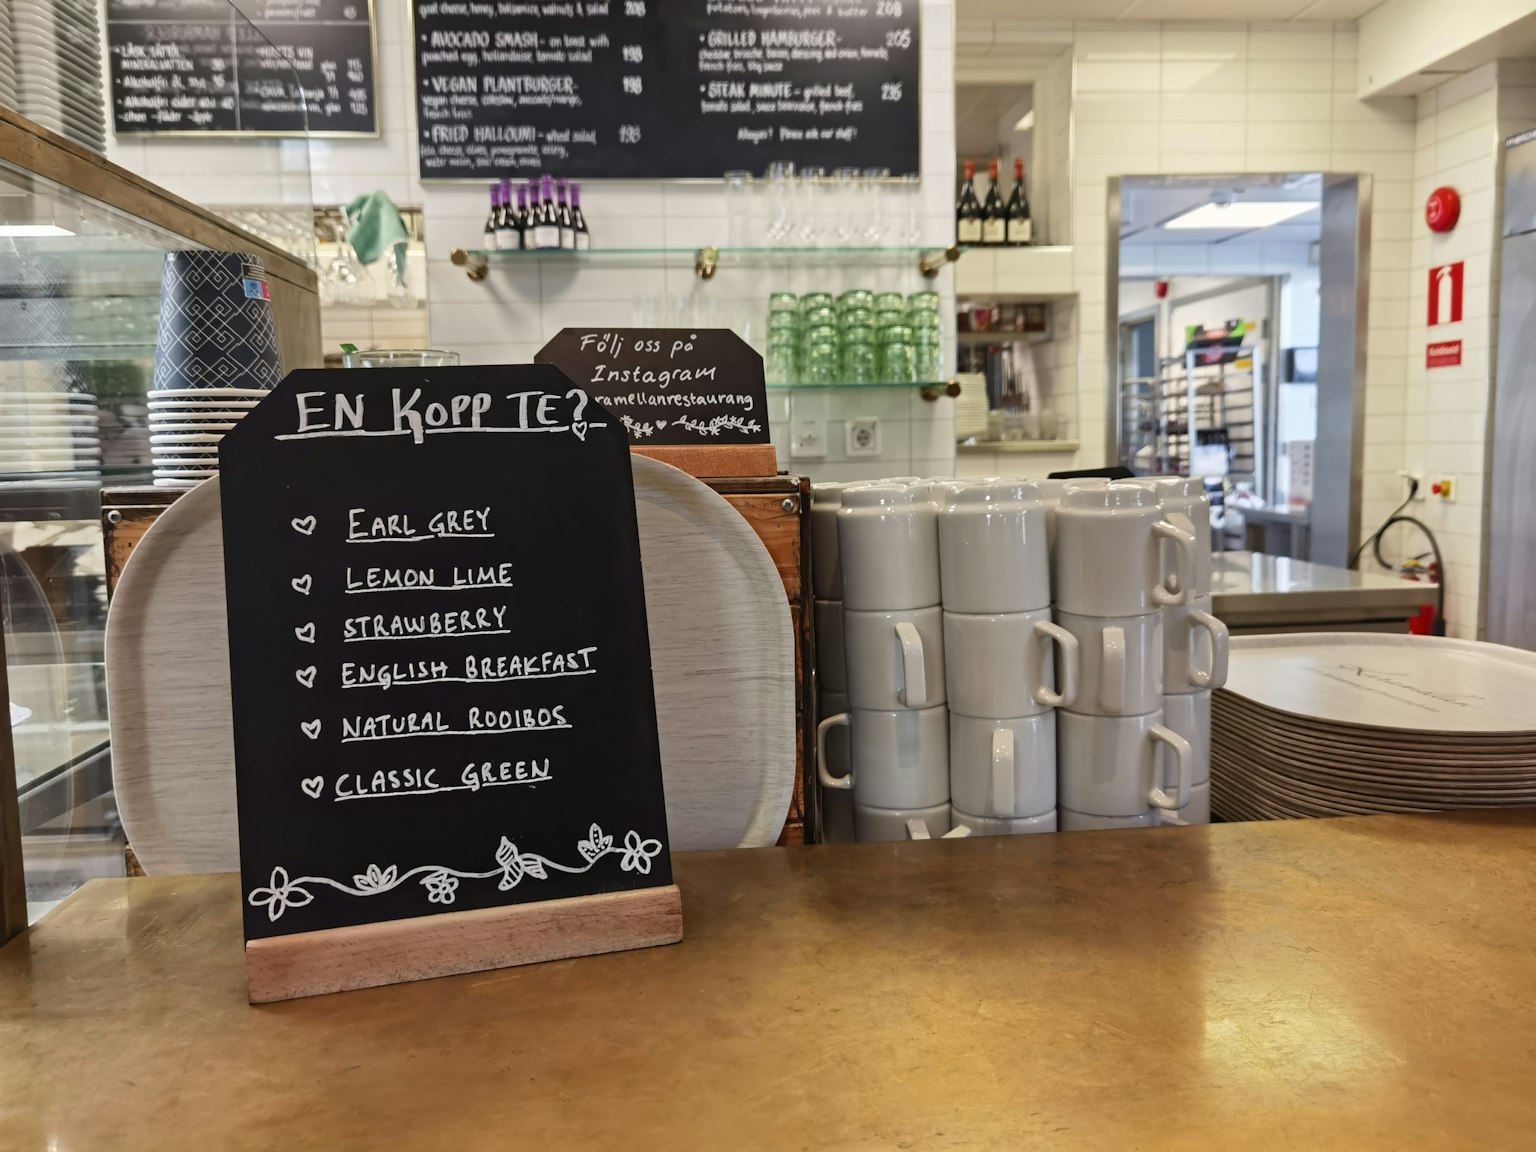 goat cheese, honey, balsamico, walnuts & salad 208
• AVOCADO SMASH - on toast with 198
poached egg, hollandaise, tomato salad
• VEGAN PLANTBURGER - 198
vegan cheese, coleslaw, avocado/mango,
french fries
• FRIED HALLOUMI - wheat salad, 198
feta cheese, olives, pomegranate, celery,
water melon, sour cream, onions
potatoes, lingonberries, peas & butter 208
• GRILLED HAMBURGER - 205
cheddar, brioche, bacon, dressing and onion, tomato,
french fries, bbq sauce
• STEAK MINUTE - grilled beef, 235
tomato salad, sauce bearnaise, french fries
Allergies? Please ask our staff!
Följ oss på
Instagram
ramellanrestaurang
EN KOPP TE?
EARL GREY
LEMON LIME
STRAWBERRY
ENGLISH BREAKFAST
NATURAL ROOIBOS
CLASSIC GREEN